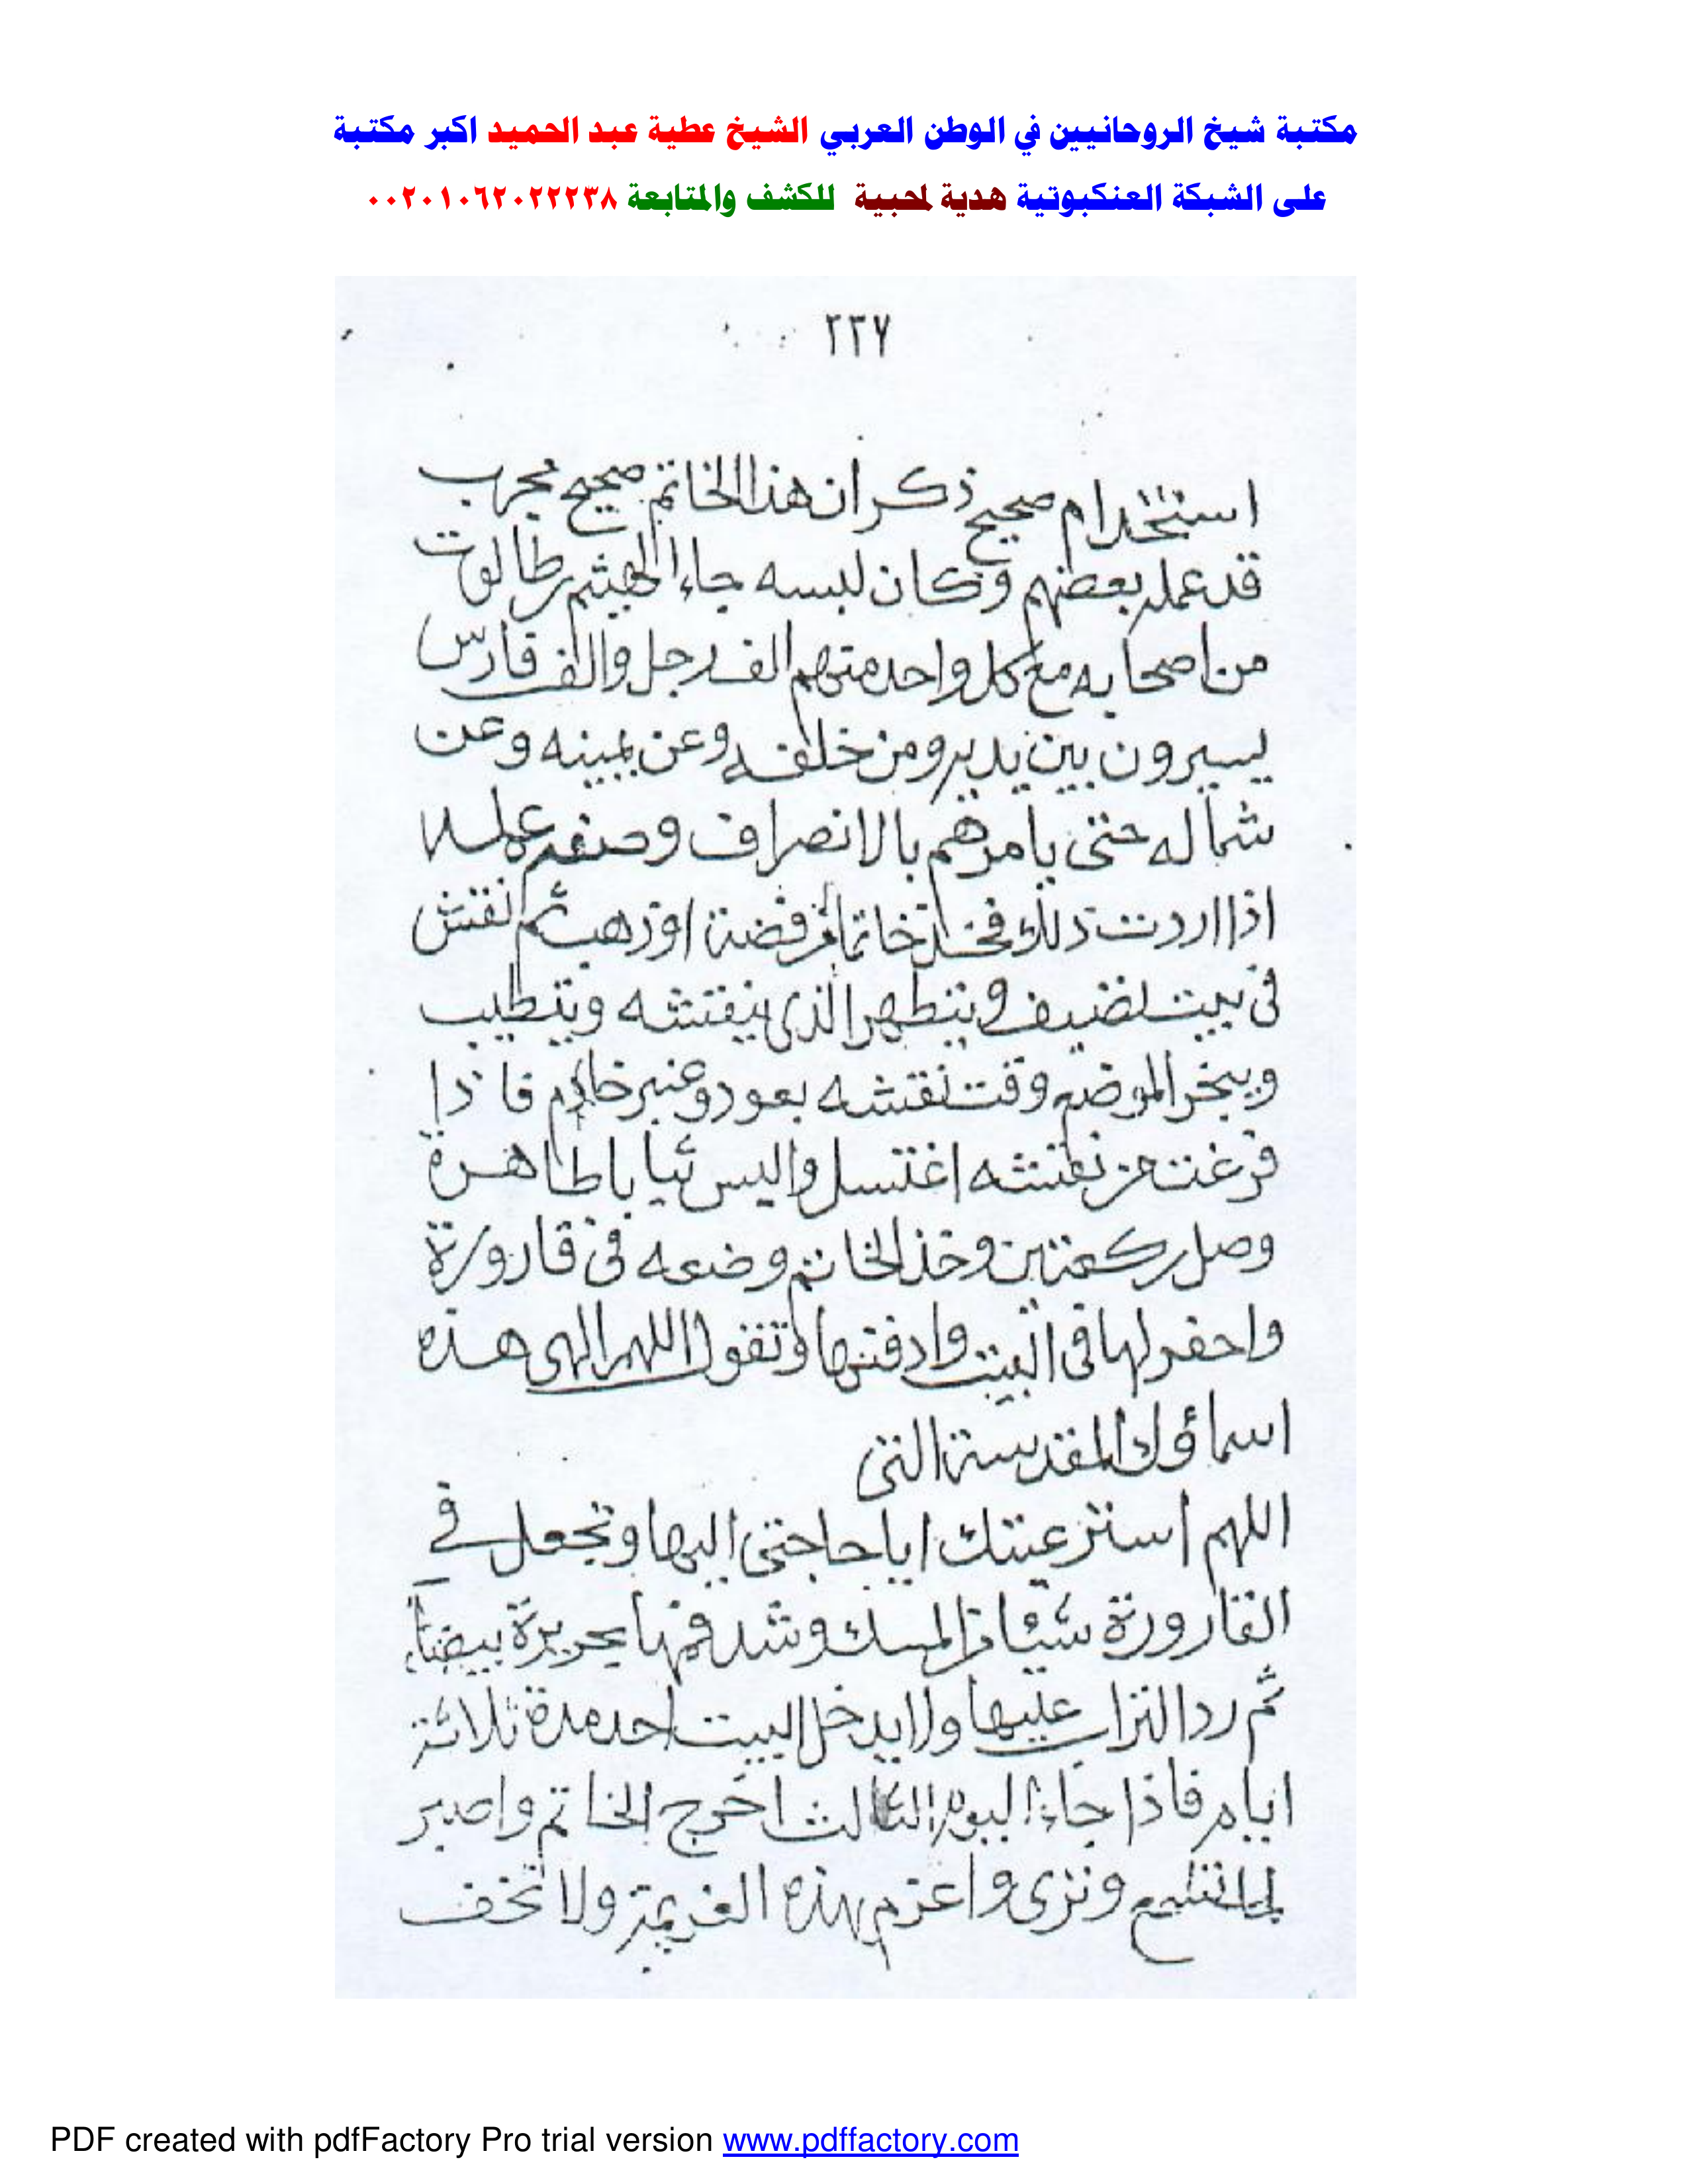 مكتبة شيخ الروحانيين في الوطن العربي الشيخ عطية عبد الحميد اكبر مكتبة
على الشبكة العنكبوتية هدية لمحبية للكشف والمتابعة ٠٠٢٠١٠٦٢٠٢٢٢٣٨
٢٢٧
استخدام صحيح ذكر ان هذا الخاتم صحيح مجرب
قد عمله بعضهم وكان لبسه جاء الهيثم طالوت
من اصحابه مع كل واحد منهم الف رجل والف فارس
يسيرون بين يديه ومن خلفه وعن يمينه وعن
شماله حتى يامرهم بالانصراف وصفة عمله
اذا اردت ذلك فخذ خاتما من فضة او ذهب ثم نقش
فى بيت نضيف ويتطهر الذى ينقشه ويتطيب
ويبخر الموضع وقت نقشه بعود وعنبر خام فاذا
فرغت من نقشه اغتسل والبس ثيابا طاهرة
وصل ركعتين وخذ الخاتم وضعه فى قارورة
واحفر لها فى البيت وادفنها وتقول اللهم الهى هذه
اسماؤك المقدسة التى
اللهم استرعيتك اياها حاجتى اليها وتجعل فى
القارورة شيئا من المسك وشد فمها بحريرة بيضاء
ثم رد التراب عليها ولا يدخل البيت احد مدة ثلاثة
ايام فاذا جاء اليوم الثالث اخرج الخاتم واصبر
لما تسمع وترى واعزم بهذه العزيمة ولا تخف
PDF created with pdfFactory Pro trial version www.pdffactory.com